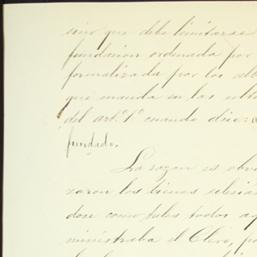 sino que debe limitarse
fundacion ordenada por
formalizada por los alb
que manda en las ulti
del art.º 1º cuando dice:
fundado.
La razon es obvi
raron los bienes eclesias
dose como tales todos aq
ministraba el Clero, po